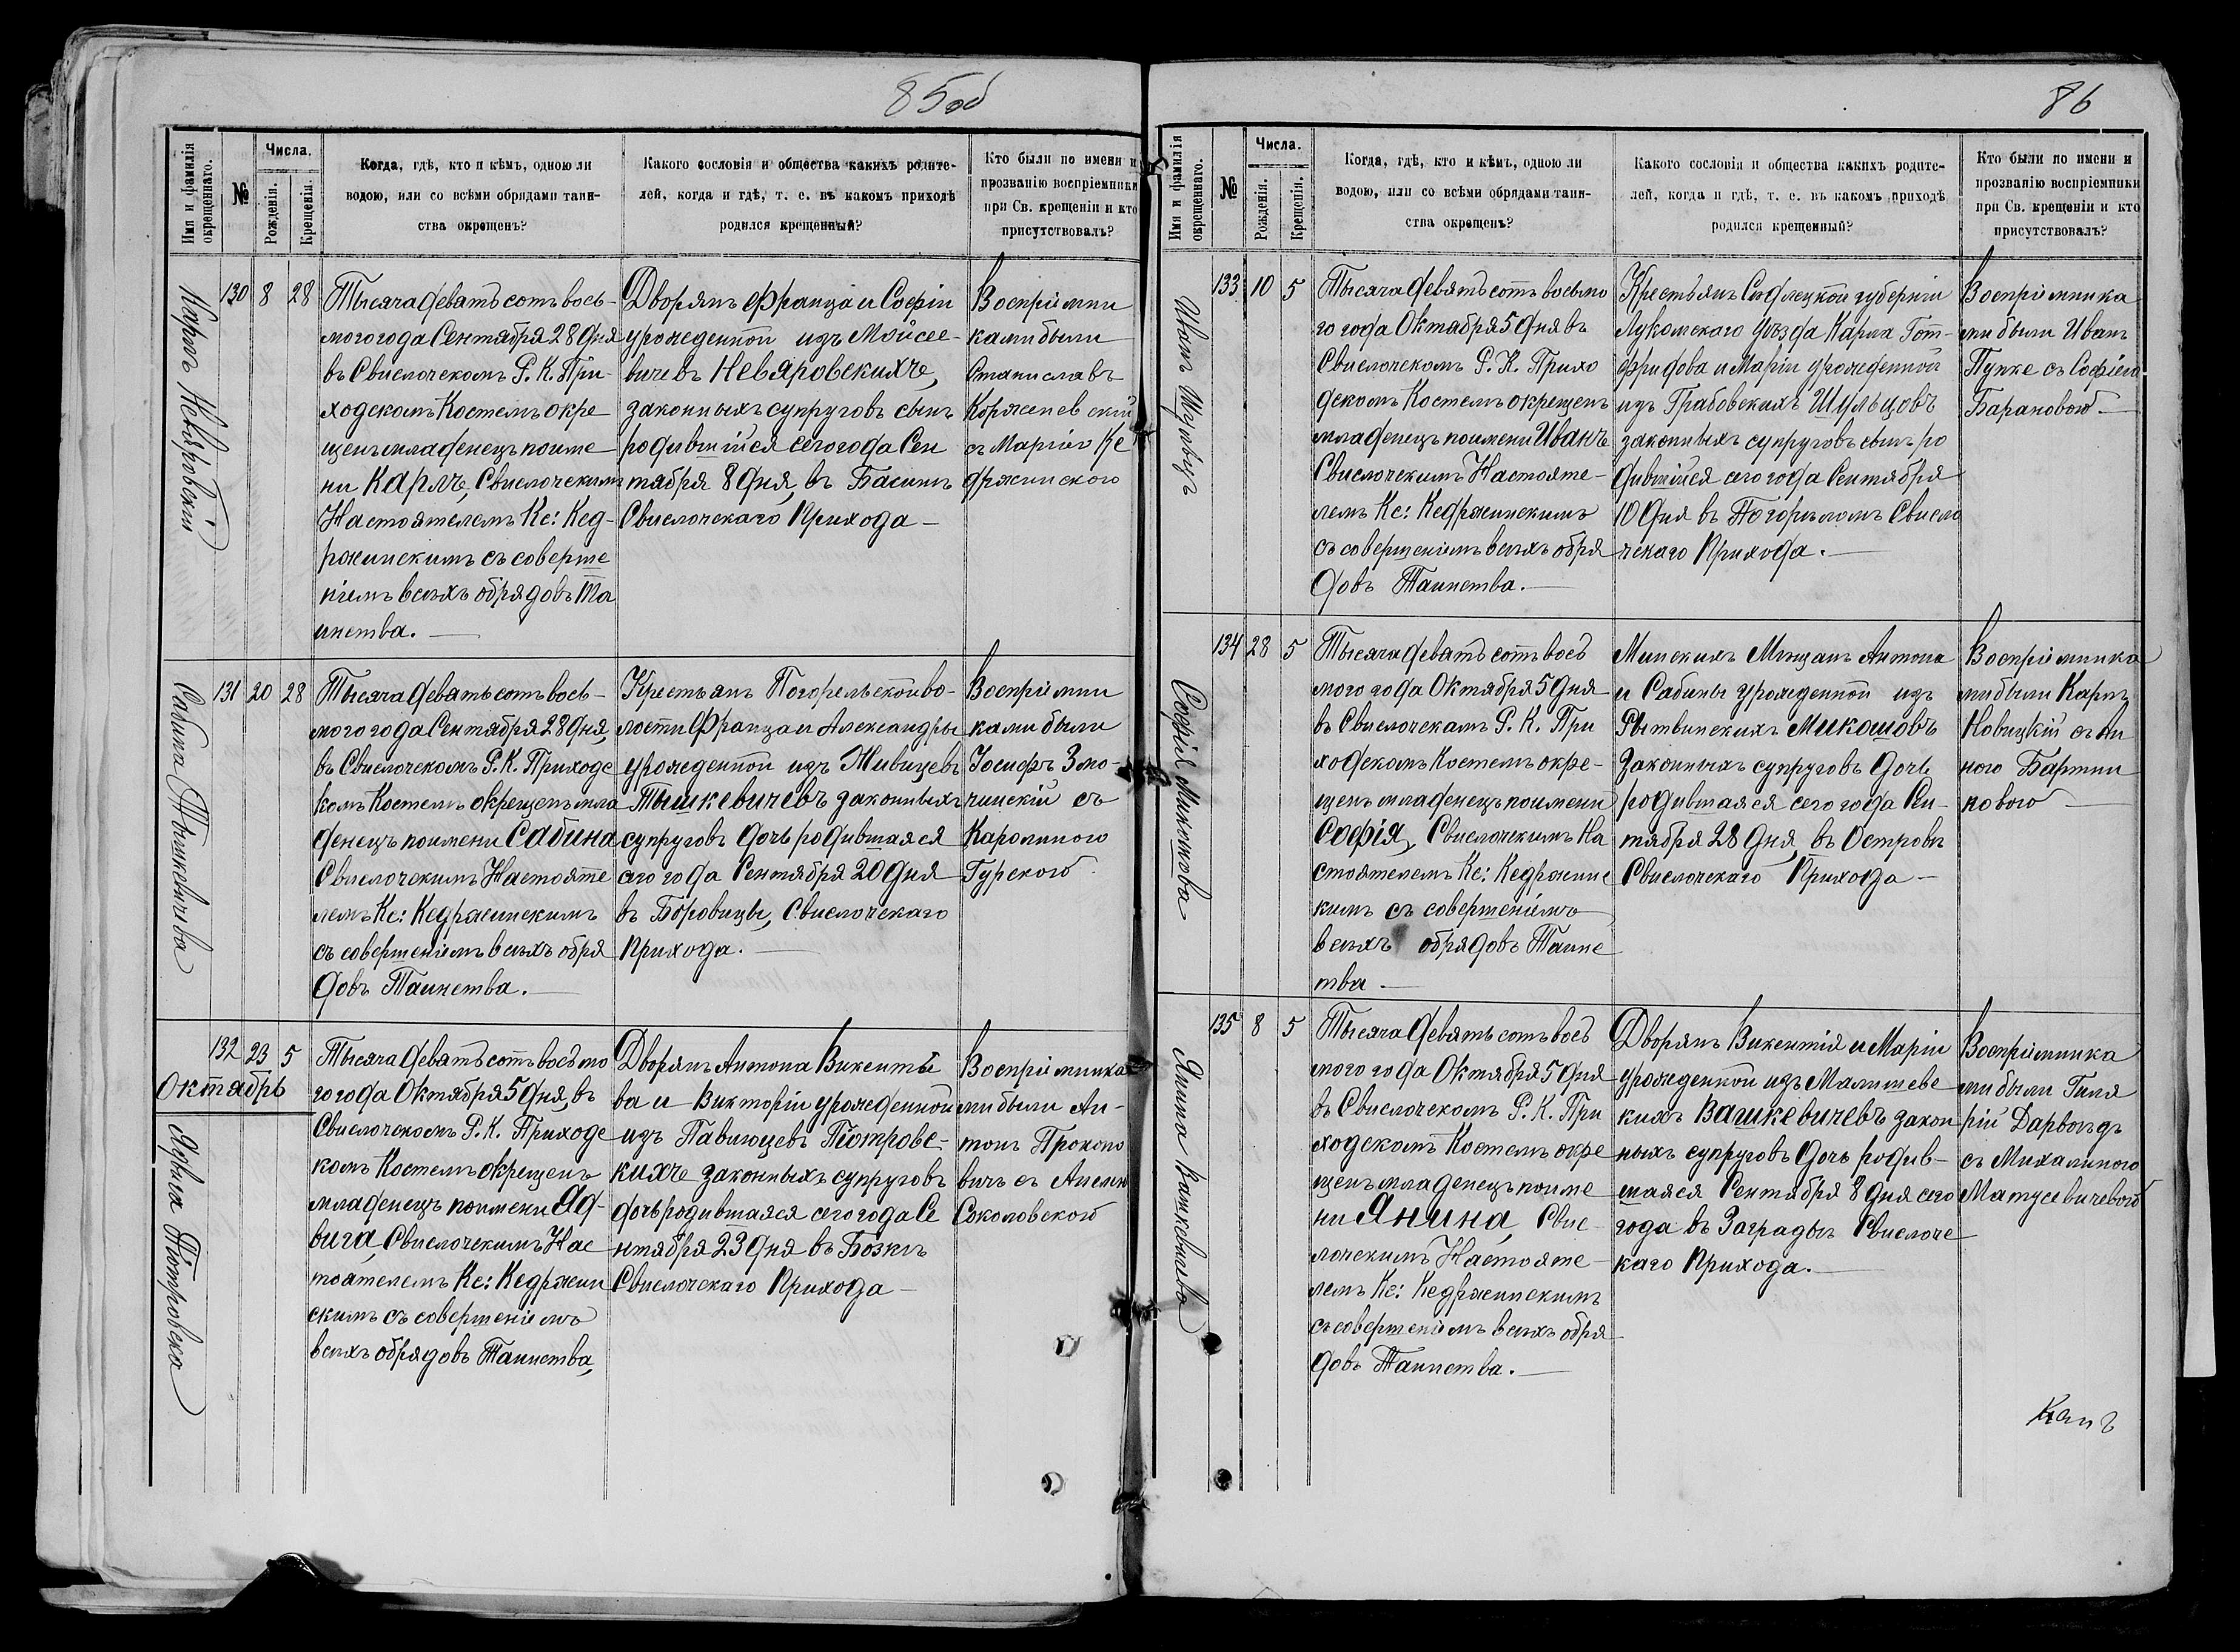 85об
Имя и фамилія окрещеннаго.
№
Числа.
Рожденія.
Крещенія.
Когда, гдѣ, кто и кѣмъ, одною ли
водою, или со всѣми обрядами таин-
ства окрещенъ?
Какого сословія и общества какихъ родите-
лей, когда и гдѣ, т. е. въ какомъ приходѣ
родился крещенный?
Кто были по имени и
прозванію воспріемники
при Св. крещеніи и кто
присутствовалъ?
Карлъ Невяровскій
130 8 28
Тысяча девятьсотъ вось-
мого года Сентября 28 дня
въ Свислочскомъ Р. К. При-
ходскомъ Костелѣ окре
щенъ младенецъ по име
ни Карлъ, Свислочскимъ
Настоятелемъ Кс: Кед-
ржинскимъ съ соверше
ніемъ всѣхъ обрядовъ Та
инства.
Дворянъ Франца и Софіи
урожденной изъ Мойсее-
вичевъ Невяровскихъ,
законныхъ супруговъ сынъ
родившійся сего года Сен
тября 8 дня, въ Басинѣ
Свислочскаго Прихода
Воспріемни
ками были
Станиславъ
Корженевскій
съ Маріею Ке
држинскою
Сабина Тышкевичева
131 20 28
Тысяча девятьсотъ вось-
мого года Сентября 28 дня,
въ Свислочскомъ Р. К. Приходс
комъ Костелѣ окрещенъ мла
денецъ по имени Сабина
Свислочскимъ Настояте
лемъ Кс: Кедржинскимъ
съ совершеніемъ всѣхъ обря
довъ Таинства.
Крестьянъ Погорельской во-
лости Франца и Александры
урожденной изъ Живицевъ
Тышкевичевъ законныхъ
супруговъ дочь родившаяся
сего года Сентября 20 дня
въ Боровицѣ, Свислочскаго
Прихода.
Воспріемни
ками были
Іосифъ Змо-
чинскій съ
Каролиною
Гурскою
132 23 5
Октябрь
Ядвига Піотровска
Тысяча девятьсотъ восьмо
го года Октября 5 дня, въ
Свислочскомъ Р. К. Приходс
комъ Костелѣ окрещенъ
младенецъ по имени Яд-
вига, Свислочскимъ Нас
тоятелемъ Кс: Кедржин
скимъ съ совершеніемъ
всѣхъ обрядовъ Таинства,
Дворянъ Антона Викентье
ва и Викторіи урожденной
изъ Павлюцевъ Піотровс-
кихъ законныхъ супруговъ
дочь родившаяся сего года Се
нтября 23 дня въ Бозкѣ
Свислочскаго Прихода
Воспріемника
ми были Ан-
тонъ Прокопо
вичъ съ Анелею
Соколовскою
86
Имя и фамилія окрещеннаго.
№
Числа.
Рожденія.
Крещенія.
Когда, гдѣ, кто и кѣмъ, одною ли
водою, или со всѣми обрядами таин-
ства окрещенъ?
Какого сословія и общества какихъ родите-
лей, когда и гдѣ, т. е. въ какомъ приходѣ
родился крещенный?
Кто были по имени и
прозванію воспріемники
при Св. крещеніи и кто
присутствовалъ?
Иванъ Шульцъ
133 10 5
Тысяча девятьсотъ восьмо
го года Октября 5 дня въ
Свислочскомъ Р. К. Прихо
дскомъ Костелѣ окрещенъ
младенецъ по имени Иванъ
Свислочскимъ Настояте-
лемъ Кс: Кедржинскимъ
съ совершеніемъ всѣхъ обря
довъ Таинства.
Крестьянъ Сѣдлецкой губерніи
Лукомскаго Уѣзда Карла Гот-
фридова и Маріи урожденной
изъ Грабовскихъ Шульцовъ
законныхъ супруговъ сынъ ро
дившійся сего года Сентября
10 дня въ Погорѣломъ Свисло
чскаго Прихода.
Воспріемника
ми были Иванъ
Пупке съ Софіею
Барановою
Софія Микошова
134 28 5
Тысяча девятьсотъ вось
мого года Октября 5 дня
въ Свислочскомъ Р. К. При
ходскомъ Костелѣ окре-
щенъ младенецъ по имени
Софія, Свислочскимъ На
стоятелемъ Кс: Кедржинс
кимъ съ совершеніемъ
всѣхъ обрядовъ Таинс
тва
Минскихъ Мѣщанъ Антона
и Сабины урожденной изъ
Рытвинскихъ Микошовъ
законныхъ супруговъ дочь
родившаяся сего года Сен-
тября 28 дня, въ Островѣ
Свислочскаго Прихода
Воспріемника
ми были Карлъ
Новицкій съ Ан
ною Бартни
ковою
Янина Вашкевичева
135 8 5
Тысяча девятьсотъ вось
мого года Октября 5 дня
въ Свислочскомъ Р. К. При
ходскомъ Костелѣ окре
щенъ младенецъ по име
ни Янина, Свис-
лочскимъ Настояте-
лемъ Кс: Кедржинскимъ
съ совершеніемъ всѣхъ обря
довъ Таинства.
Дворянъ Викентія и Маріи
урожденной изъ Малишевс
кихъ Вашкевичевъ закон
ныхъ супруговъ дочь родив-
шаяся Сентября 8 дня сего
года въ Заградьѣ Свислочс
каго Прихода.
Воспріемника
ми были Гиля
рій Дарвойдъ
съ Михалиною
Матусевичевою